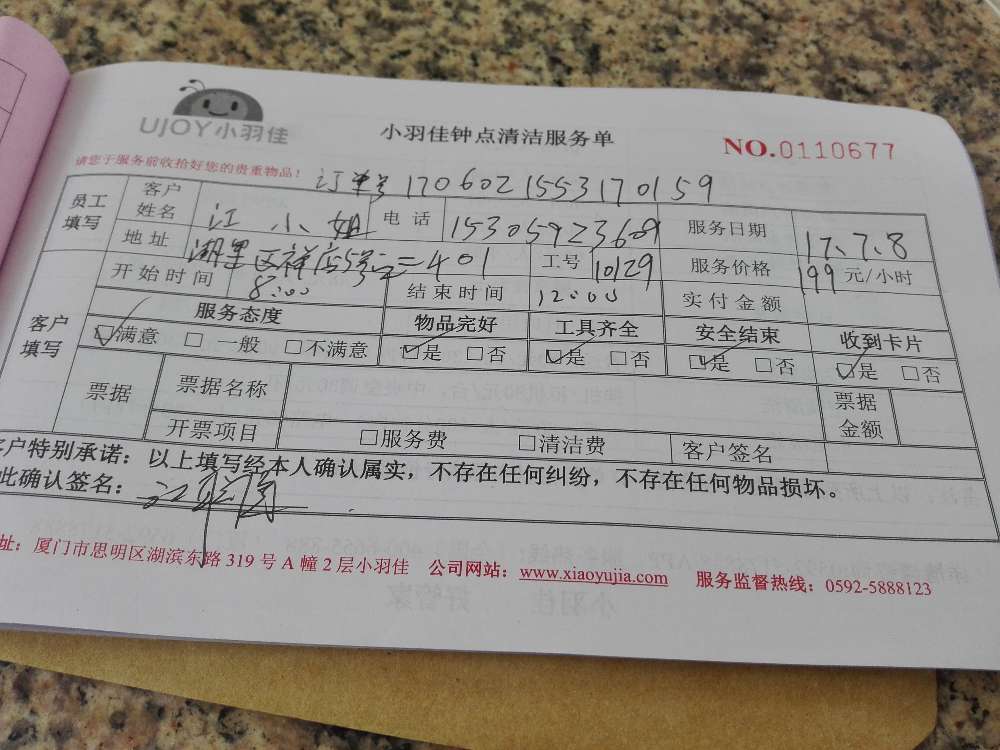 UJOY小羽佳
小羽佳钟点清洁服务单
NO.0110677
请您于服务前收拾好您的贵重物品！
订单号 1706021553170159
员工填写 客户姓名 江小姐 电话 15305923609 服务日期 17.7.8
地址 湖里区祥店5号之二401 工号 10129 服务价格 199 元/小时
客户填写 开始时间 8:00 结束时间 12:00 实付金额
服务态度 物品完好 工具齐全 安全结束 收到卡片
☑满意 □一般 □不满意 ☑是 □否 ☑是 □否 ☑是 □否 ☑是 □否
票据 票据名称 票据金额
开票项目 □服务费 □清洁费 客户签名
客户特别承诺：以上填写经本人确认属实，不存在任何纠纷，不存在任何物品损坏。
此确认签名：江
址：厦门市思明区湖滨东路 319 号 A 幢 2 层小羽佳 公司网站：www.xiaoyujia.com 服务监督热线：0592-5888123